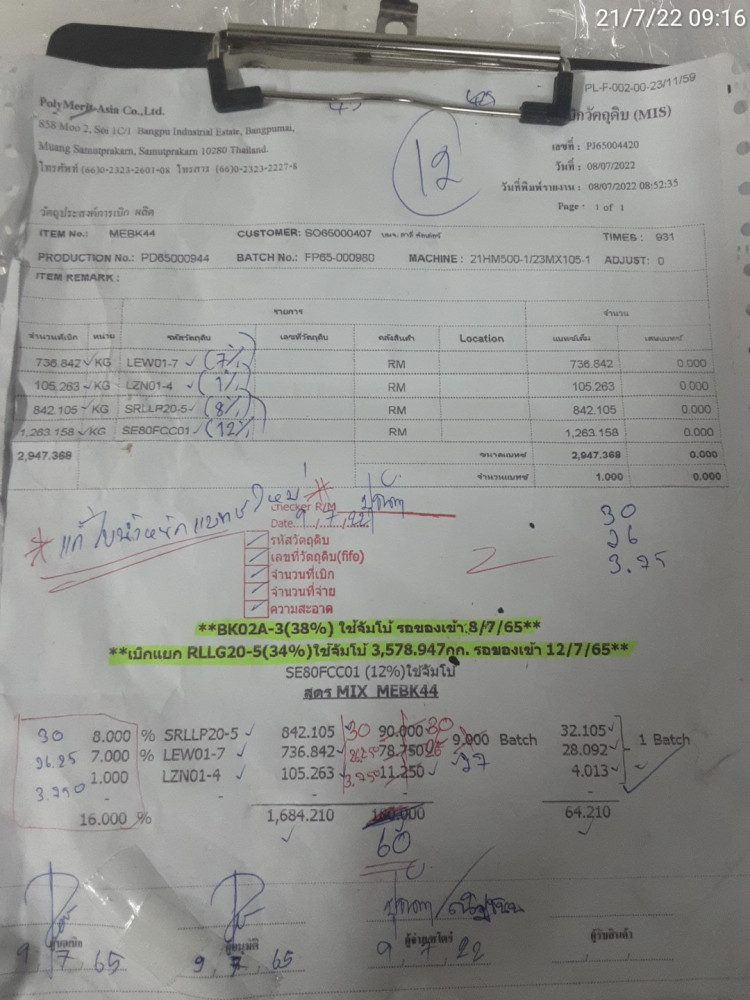 21/7/22 09:16
PL-F-002-00-23/11/59
PolyMerit-Asia Co.,Ltd.
858 Moo 2, Soi 1C/1 Bangpu Industrial Estate, Bangpumai,
Muang Samutprakarn, Samutprakarn 10280 Thailand.
โทรศัพท์ (66)0-2323-2601-08 โทรสาร (66)0-2323-2227-8
เบิกวัตถุดิบ (MIS)
เลขที่ : PJ65004420
วันที่ : 08/07/2022
วันที่พิมพ์รายงาน : 08/07/2022 08:52:35
Page : 1 of 1
12
วัตถุประสงค์การเบิก ผลิต
ITEM No.: MEBK44 CUSTOMER: SO65000407 TIMES: 931
PRODUCTION No.: PD65000944 BATCH No.: FP65-000980 MACHINE : 21HM500-1/23MX105-1 ADJUST: 0
ITEM REMARK :
รายการ จำนวน
จำนวนที่เบิก หน่วย รหัสวัตถุดิบ เลขที่วัตถุดิบ คลังสินค้า Location แบทช์เต็ม เศษแบทช์
736.842 KG LEW01-7 (7%) RM 736.842 0.000
105.263 KG LZN01-4 (1%) RM 105.263 0.000
842.105 KG SRLLP20-5 (8%) RM 842.105 0.000
1,263.158 KG SE80FCC01 (12%) RM 1,263.158 0.000
2,947.368 ขนาดแบทช์ 2,947.368 0.000
จำนวนแบทช์ 1.000 0.000
* แก้ใบน้ำหนักแบทช์ใหม่ *
checker R/M
Date 9/7/22
รหัสวัตถุดิบ
เลขที่วัตถุดิบ(fifo)
จำนวนที่เบิก
จำนวนที่จ่าย
ความสะอาด
30
26
3.75
**BK02A-3(38%) ใช้จัมโบ้ รอของเข้า 8/7/65**
**เบิกแยก RLLG20-5(34%)ใช้จัมโบ้ 3,578.947กก. รอของเข้า 12/7/65**
SE80FCC01 (12%)ใช้จัมโบ้
สูตร MIX MEBK44
30 8.000 % SRLLP20-5 842.105 30 90.000 30 9.000 Batch 32.105
26.25 7.000 % LEW01-7 736.842 26.250 78.750 26 27 28.092 1 Batch
3.750 1.000 LZN01-4 105.263 3.750 11.250 4.013
- - - -
16.000 % 1,684.210 180.000 64.210
60
ผู้ขอเบิก ผู้อนุมัติ ผู้จ่ายสโตร์ ผู้รับสินค้า
9 7 65 9 7 65 9 7 22